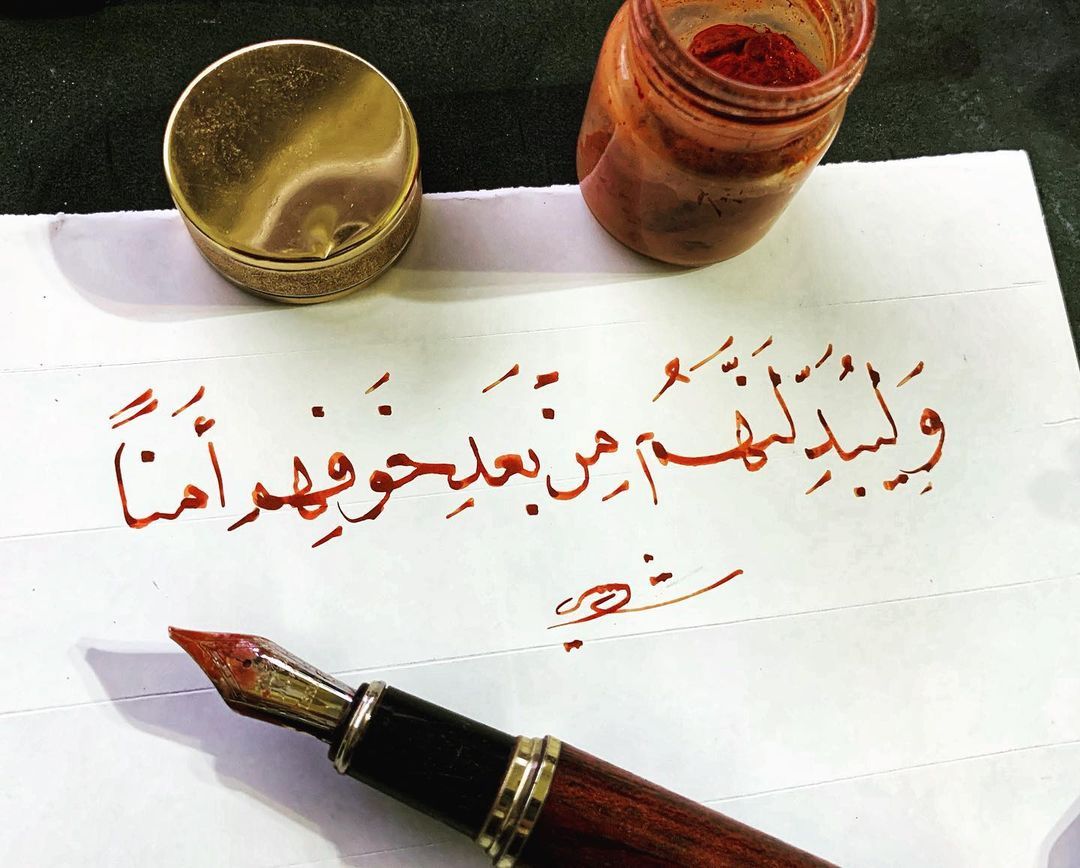 وَلَيُبَدِّلَنَّهُم مِّن بَعدِ خَوفِهِم أَمنًا